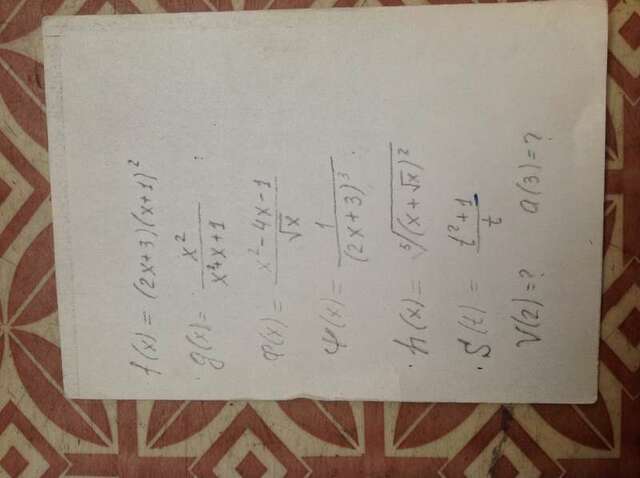 f(x) = (2x+3)(x+1)²
g(x) = x² / (x²+x+1)
φ(x) = (x²-4x-1) / √x
ψ(x) = 1 / (2x+3)³
h(x) = ⁵√(x+√x)²
S(t) = (t²+1) / t
V(2)=? a(3)=?